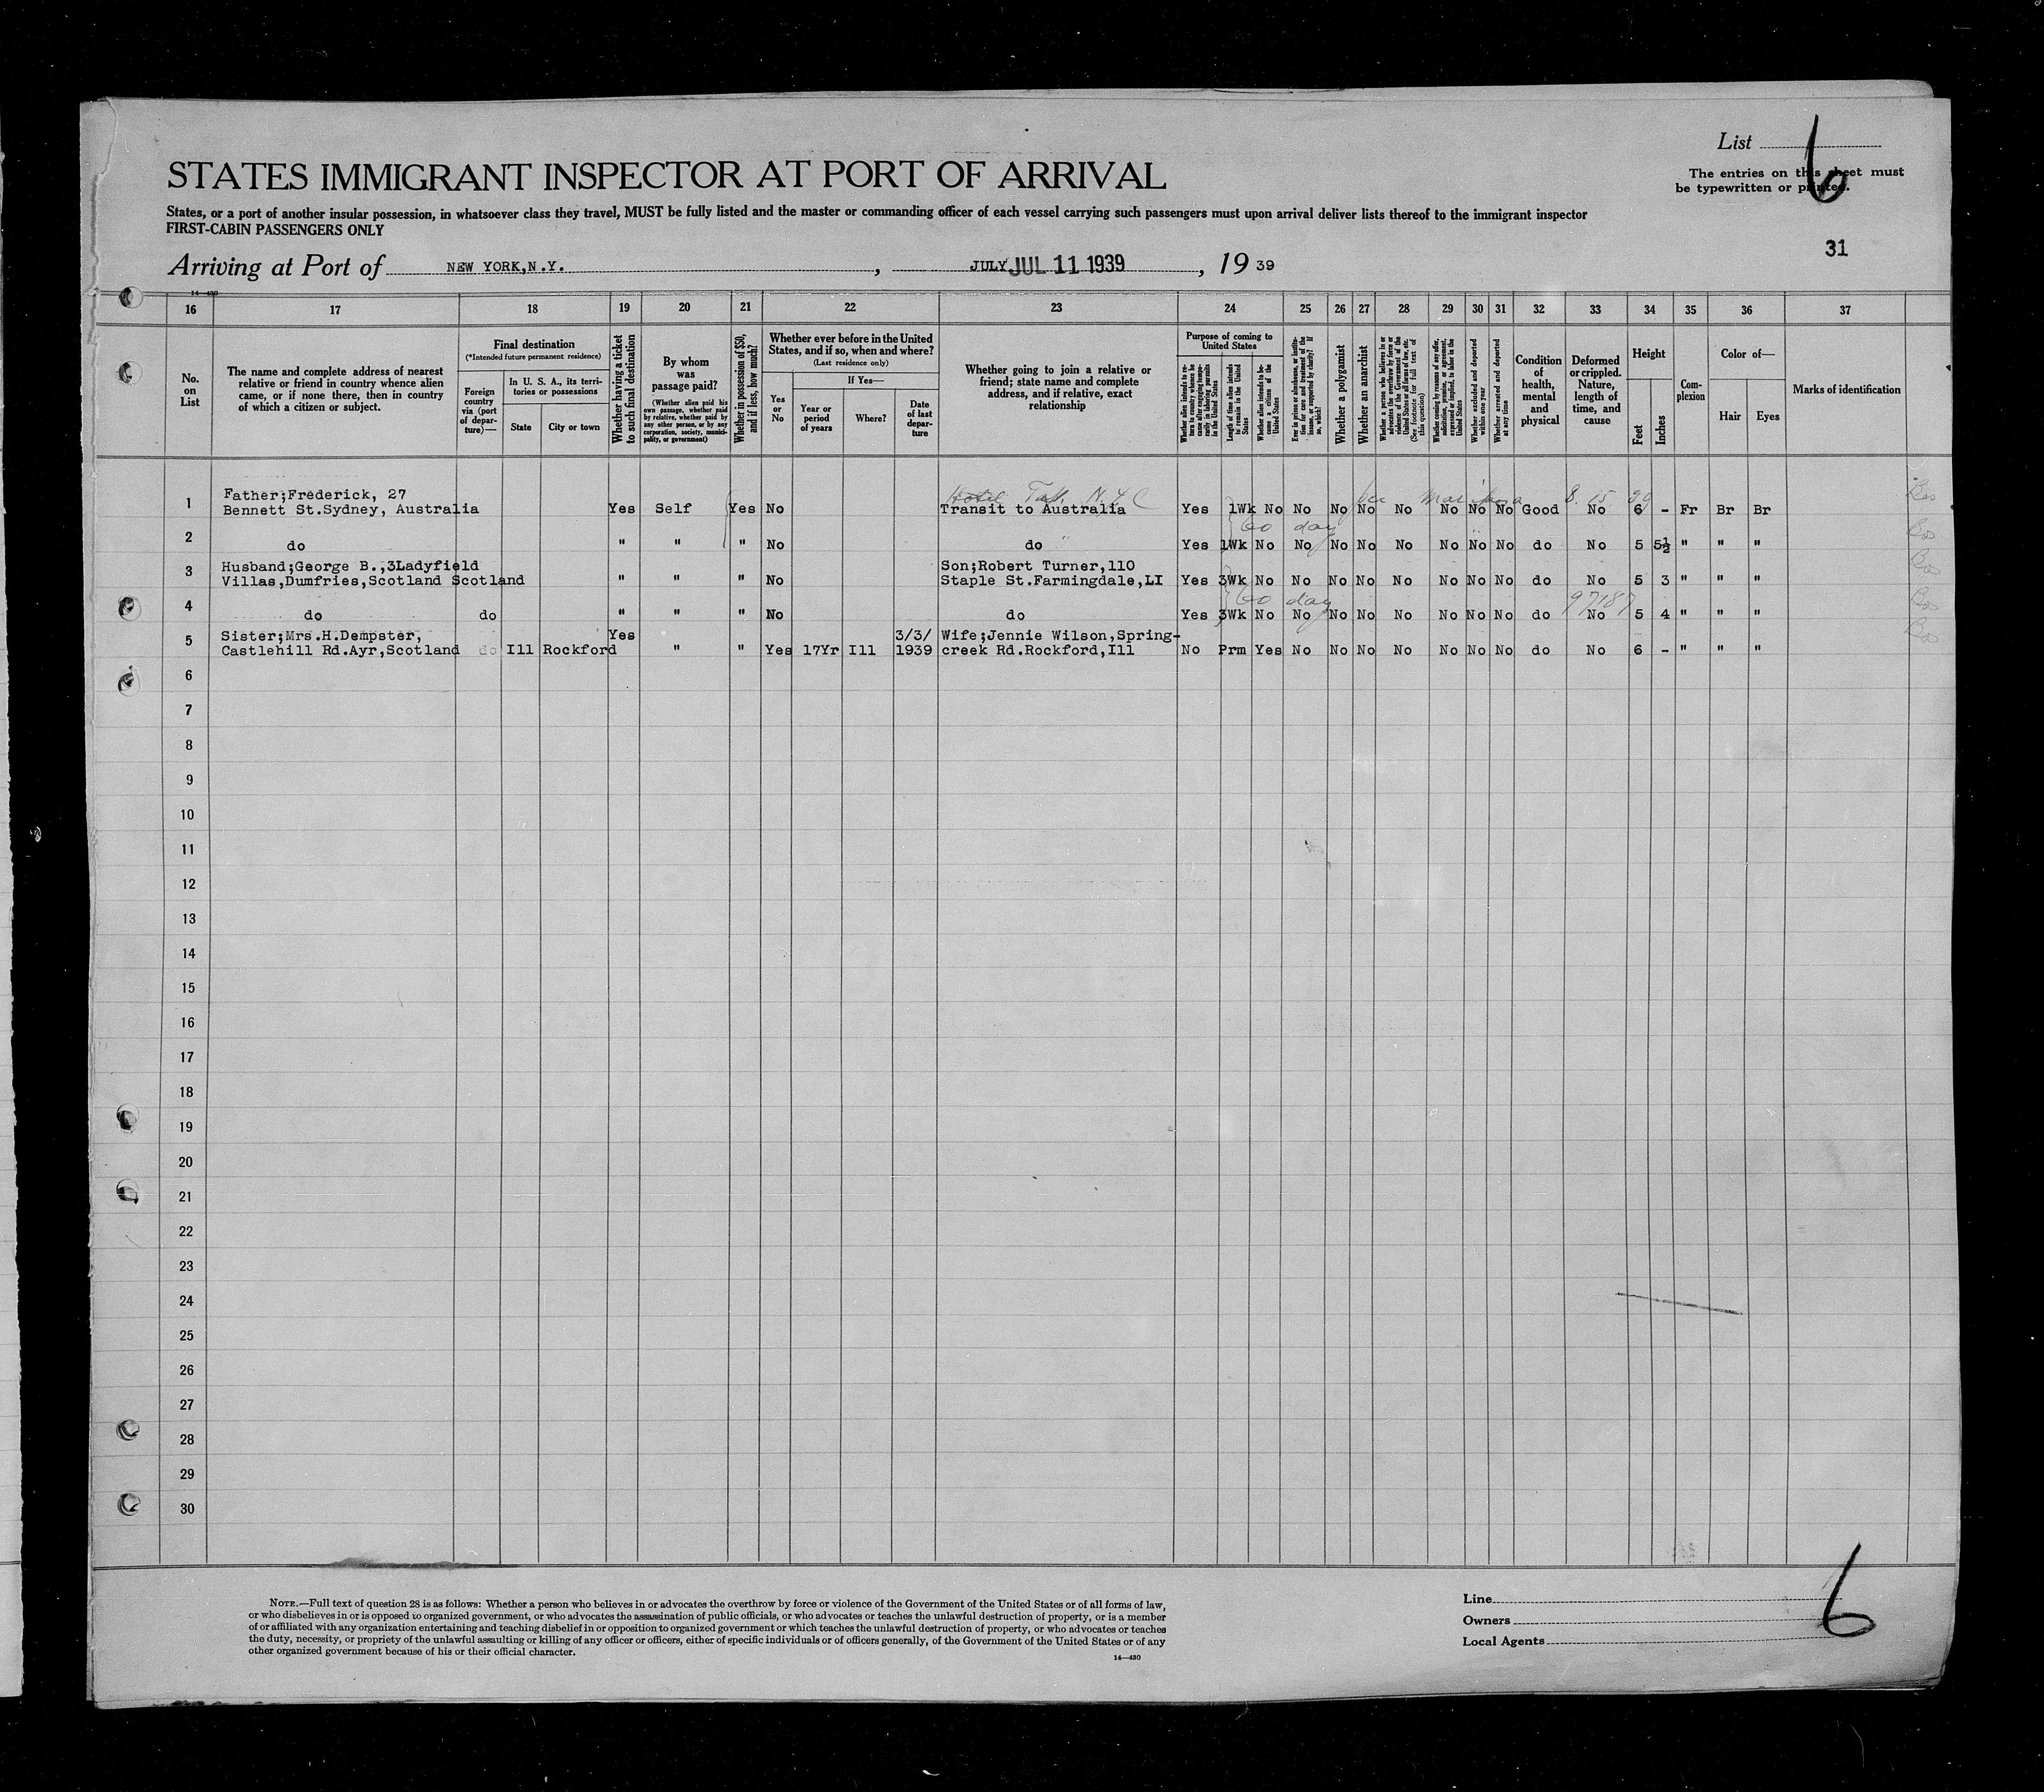 List 6
STATES IMMIGRANT INSPECTOR AT PORT OF ARRIVAL
The entries on this sheet must
be typewritten or printed.
States, or a port of another insular possession, in whatsoever class they travel, MUST be fully listed and the master or commanding officer of each vessel carrying such passengers must upon arrival deliver lists thereof to the immigrant inspector
FIRST-CABIN PASSENGERS ONLY
31
Arriving at Port of NEW YORK,N.Y. , JULY JUL 11 1939 , 19 39
14—430
16 17 18 19 20 21 22 23 24 25 26 27 28 29 30 31 32 33 34 35 36 37
No. on List
The name and complete address of nearest
relative or friend in country whence alien
came, or if none there, then in country
of which a citizen or subject.
Final destination
(*Intended future permanent residence)
Foreign country via (port of departure)—
In U. S. A., its territories or possessions
State
City or town
Whether having a ticket to such final destination
By whom was passage paid?
(Whether alien paid his own passage, whether paid by relative, whether paid by any other person, or by any corporation, society, municipality, or government)
Whether in possession of $50, and if less, how much?
Whether ever before in the United
States, and if so, when and where?
(Last residence only)
Yes or No
If Yes—
Year or period of years
Where?
Date of last departure
Whether going to join a relative or
friend; state name and complete
address, and if relative, exact
relationship
Purpose of coming to United States
Whether alien intends to return to country whence he came after engaging temporarily in laboring pursuits in the United States
Length of time alien intends to remain in the United States
Whether alien intends to become a citizen of the United States
Ever in prison or almshouse, or institution for care and treatment of the insane, or supported by charity? If so, which?
Whether a polygamist
Whether an anarchist
Whether a person who believes in or advocates the overthrow by force or violence of the Government of the United States or all forms of law, etc. (See footnote for full text of this question)
Whether coming by reasons of any offer, solicitation, promise, or agreement, expressed or implied, to labor in the United States
Whether excluded and deported within one year
Whether arrested and deported at any time
Condition of health, mental and physical
Deformed or crippled. Nature, length of time, and cause
Height
Feet
Inches
Complexion
Color of—
Hair
Eyes
Marks of identification
Father;Frederick, 27 Hotel Taft N.Y.C 8. 15 39
1 Bennett St.Sydney, Australia Yes Self Yes No Transit to Australia Yes 1Wk No No No No No No No No Good No 6 - Fr Br Br
60 day
2 do " " " No do Yes 1Wk No No No No No No No No do No 5 5½ " " "
3 Husband;George B.,3Ladyfield Son;Robert Turner,110
Villas,Dumfries,Scotland Scotland " " " No Staple St.Farmingdale,LI Yes 3Wk No No No No No No No No do No 5 3 " " "
60 day 97187
4 do do " " " No do Yes 3Wk No No No No No No No No do No 5 4 " " "
Sister;Mrs.H.Dempster, Yes 3/3/ Wife;Jennie Wilson,Spring-
5 Castlehill Rd.Ayr,Scotland do Ill Rockford " " Yes 17Yr Ill 1939 creek Rd.Rockford,Ill No Prm Yes No No No No No No No do No 6 - " " "
6
7
8
9
10
11
12
13
14
15
16
17
18
19
20
21
22
23
24
25
26
27
28
29
30
NOTE.—Full text of question 28 is as follows: Whether a person who believes in or advocates the overthrow by force or violence of the Government of the United States or of all forms of law,
or who disbelieves in or is opposed to organized government, or who advocates the assassination of public officials, or who advocates or teaches the unlawful destruction of property, or is a member
of or affiliated with any organization entertaining and teaching disbelief in or opposition to organized government or which teaches the unlawful destruction of property, or who advocates or teaches
the duty, necessity, or propriety of the unlawful assaulting or killing of any officer or officers, either of specific individuals or of officers generally, of the Government of the United States or of any
other organized government because of his or their official character.
14—430
Line
Owners
Local Agents
6